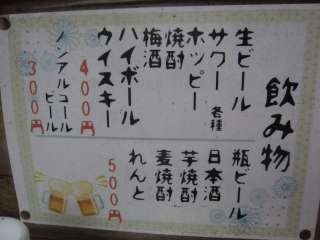 飲み物
生ビール
サワー 各種
ホッピー
焼酎
梅酒
ハイボール
ウイスキー
400円
ノンアルコール
ビール
300円
瓶ビール
日本酒
芋焼酎
麦焼酎
れんと
500円